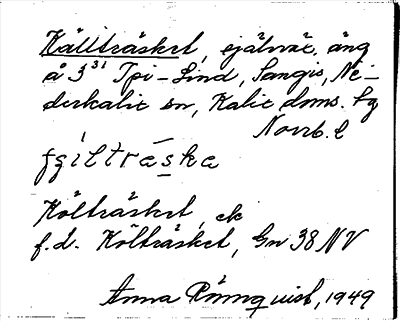 Källträsket, själväg. äng
å 3³¹ Tpi-Lind, Sangis, Ne-
derkalix sn, Kalix doms. lg
Norrb. l
Költräsket, ek
f.d. Költräsket, Gn 38 NV
Anna Rönnquist, 1949